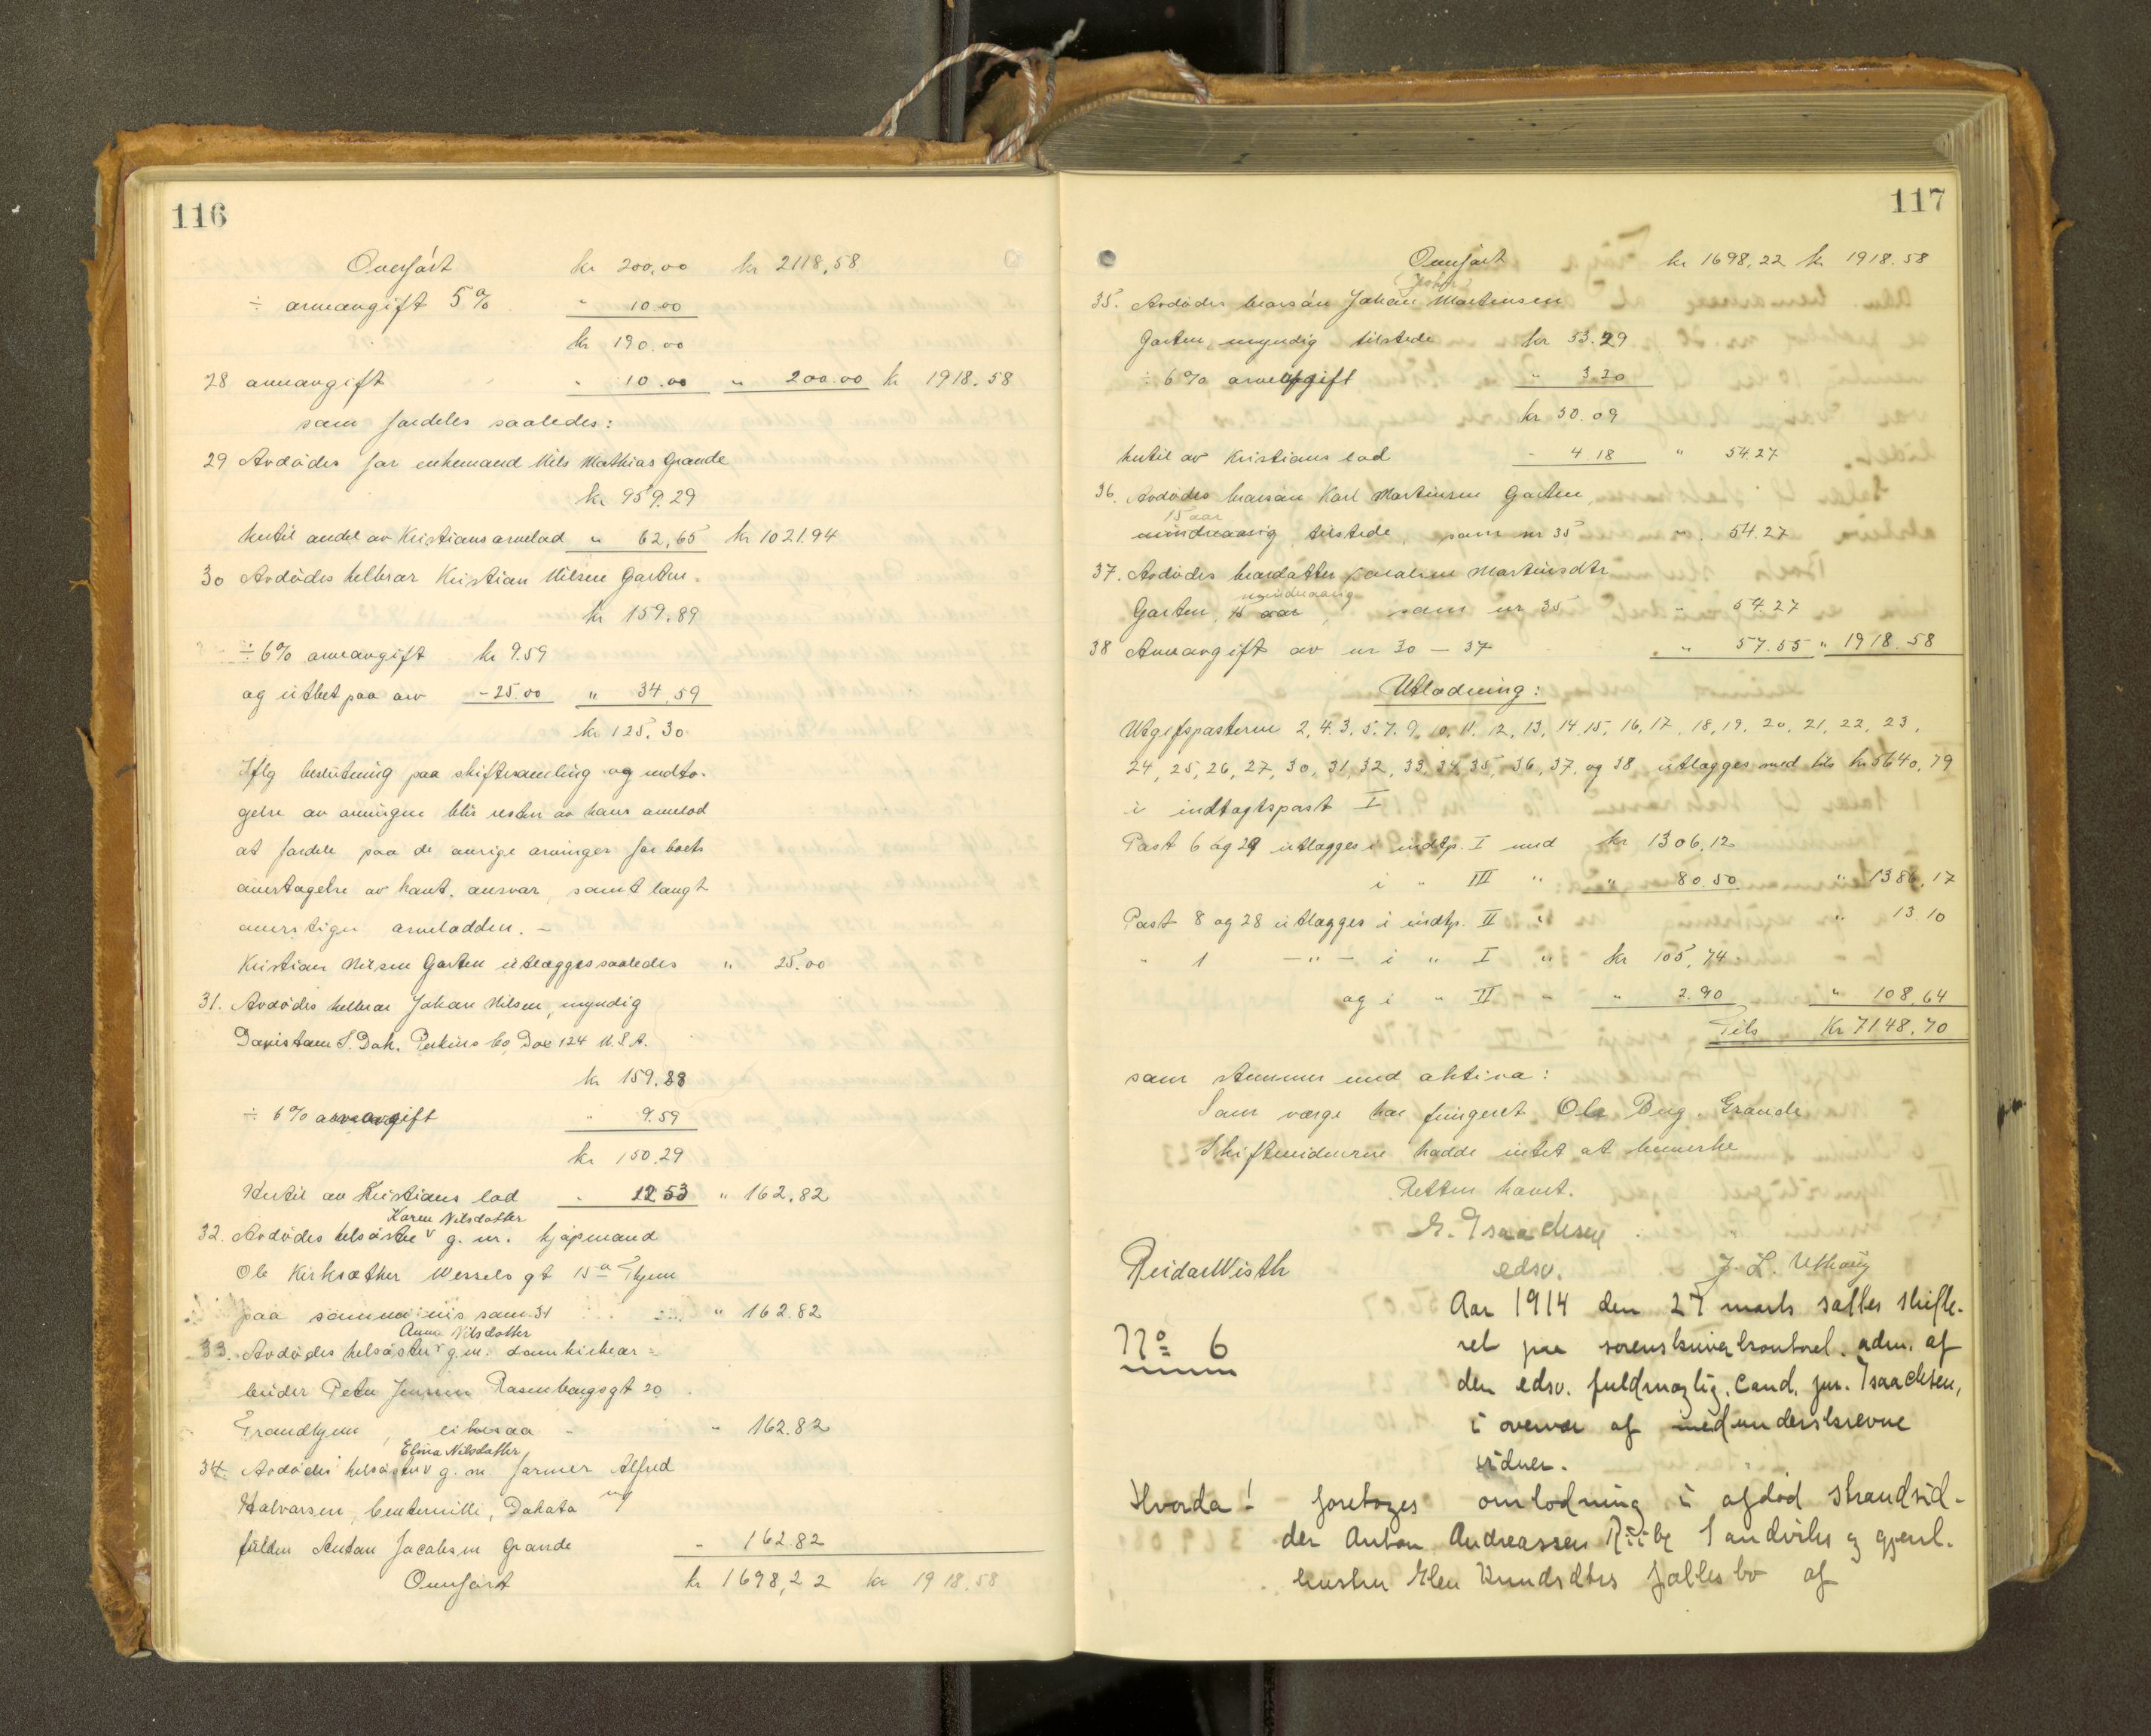 116
Overført kr 200,00 kr 2118,58
÷ arveavgift 5% " 10.00
kr 190.00
28 arveavgift " 10.00 " 200.00 kr 1918.58
som fordeles saaledes:
29 Avdødes far enkemand Nils Mathias Grande
kr 959.29
hertil andel av Kristians arvelod " 62,65 kr 1021.94
30 Avdødes helbror Kristian Nilsen Garten
kr 159.89
÷ 6% arveavgift kr 9.59
og utbet paa arv - 25.00 " 34,59
kr 125.30
Iflg beslutning paa skiftesamling og vedta-
gelse av arvingen blir resten av hans arvelod
at fordele paa de øvrige arvinger for boets
overtagelse av kaut. ansvar, samt langt
overstiger arvelodden. -
Kristian Nilsen Garten utlægges saaledes " 25.00
31. Avdødes helbror Johan Nilsen, myndig
S. Dak. Perkins Co, 124 U.S.A.
kr 159.88
÷ 6% arveavgift " 9.59
kr 150.29
Hertil av Kristians lod " 12 53 " 162.82
Karen Nilsdatter
32. Avdødes helsøster v g. m. kjøpmand
Ole Kirksæther Wessels gt 15a Thjem
paa samme vis som 31 " 162.82
Anna Nilsdatter
33. Avdødes helsøster v g.m. domkirkear=
beider Peter Jenssen Rosenborgsgt 20
Trondhjem, " 162.82
Elina Nilsdatter
34. Avdødes helsøster v g. m. farmer Alfred
Halvorsen, Centerville, Dakota
fulldm Anton Jacobsen Grande " 162.82
Overført kr 1698,22 kr 1918.58
117
Overført kr 1698,22 kr 1918.58
(John)
35. Avdødes brorsøn Johan Martinsen
Garten, myndig tilstede kr 33.29
÷ 6% arveafgift " 3.20
kr 30.09
hertil av Kristians lod " 4.18 " 54.27
36. Avdødes brorsøn Karl Martinsen Garten,
15 aar
mindreaarig, tilstede, som nr 35 " 54.27
37. Avdødes brordatter Martinsdtr
mindreaarig
Garten, 15 aar, som nr 35 " 54.27
38 Arveavgift av nr 30 - 37 " 57.55 " 1918.58
Utlodning:
Utgiftsposterne 2, 4. 3. 5. 7. 9. 10. 11. 12, 13, 14, 15, 16, 17, 18, 19, 20, 21, 22, 23,
24, 25, 26, 27, 30, 31, 32, 33, 34, 35, 36, 37, og 38 utlægges med tils kr 5640,79
i indtægtspost I
Post 6 og 29 utlægges i indtp. I med kr 1306.12
i " III " " 80.50 " 1386,17
Post 8 og 28 utlægges i indtp. II " " 13.10
" 1 -"- i " I " kr 105,74
og i " II " " 2.90 " 108,64
Tils Kr 7148,70
som stemmer med aktiva:
Som værge har fungeret Ole Bug. Grande
Skiftevidnerne hadde intet at bemerke
Retten hævet.
E. Isaachsen
Reidar Wisth edsv. J. L. Uthaug
Aar 1914 den 27 marts sattes skifte-
No 6 ret paa sorenskriverkontoret. adm. af
den edsv. fuldmægtig, Cand. jur. Isaachsen,
i overvær af medunderskrevne
vidner.
Hvorda! foretoges omlodning i afdød strandsid-
der Anton Andreassen Sandviks og gjenl.
hustru Elen Knudsdtrs fællesbo af